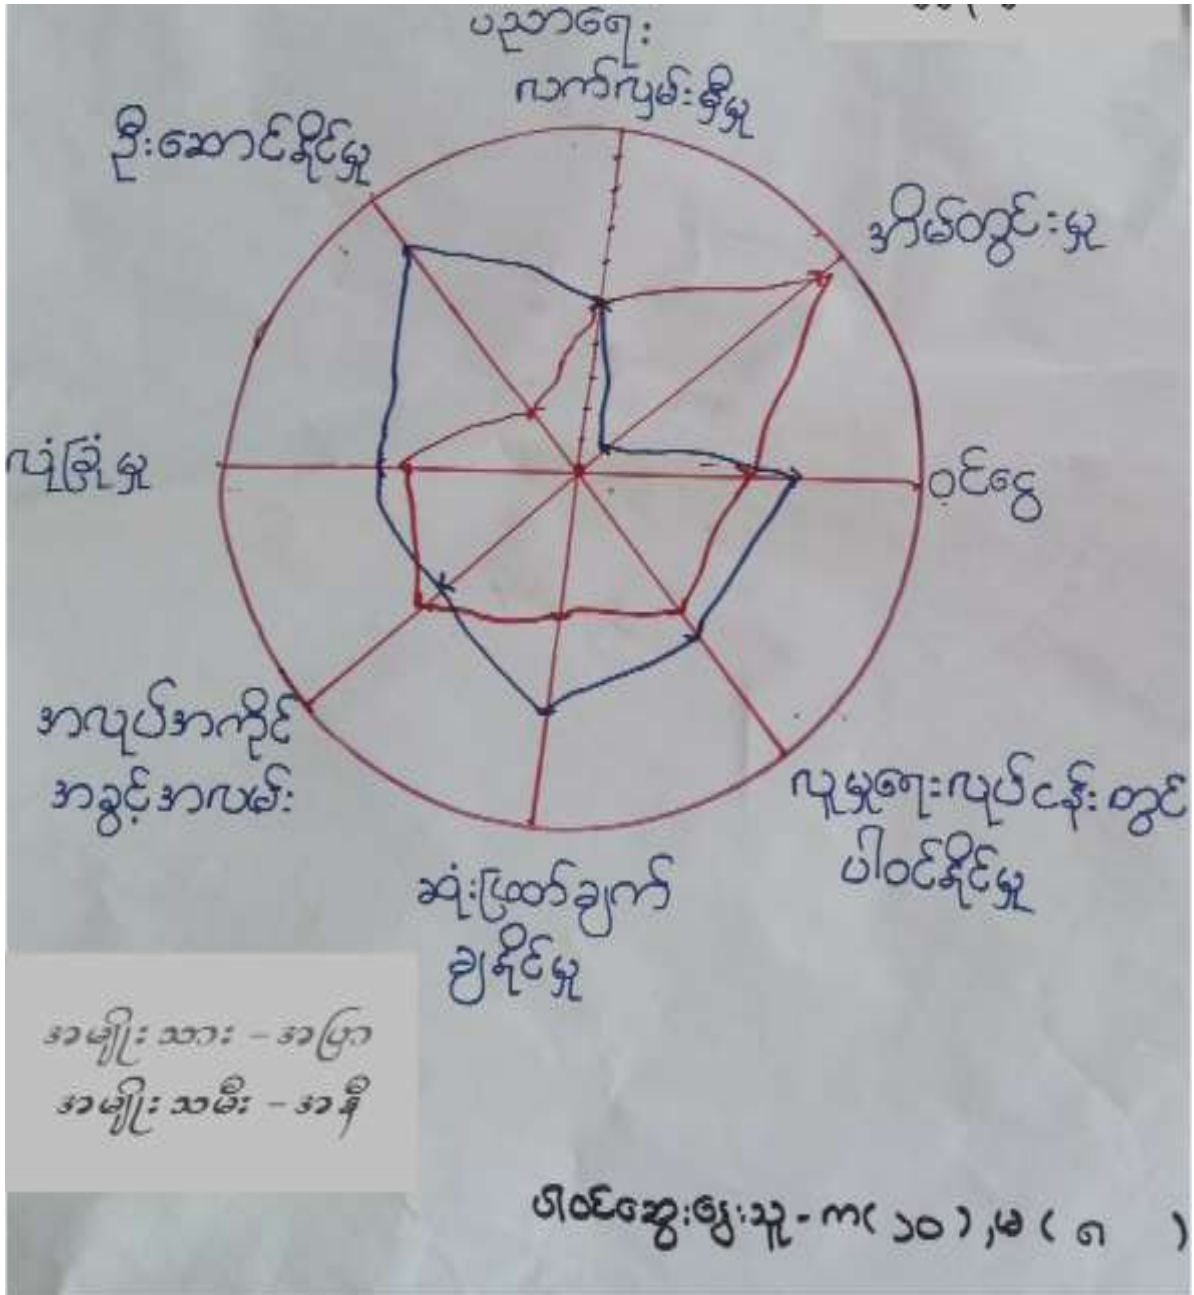 ပညာရေး
လက်လှမ်းမှီမှု
ဦးဆောင်နိုင်မှု
အိမ်တွင်းမှု
လုံခြုံမှု
ဝင်ငွေ
အလုပ်အကိုင်
အခွင့်အလမ်း
လူမှုရေးလုပ်ငန်းတွင်
ပါဝင်နိုင်မှု
ဆုံးဖြတ်ချက်
ချနိုင်မှု
အမျိုးသား - အပြာ
အမျိုးသမီး - အနီ
ပါဝင်ဆွေးနွေးသူ - က(၁၀), မ(၈)